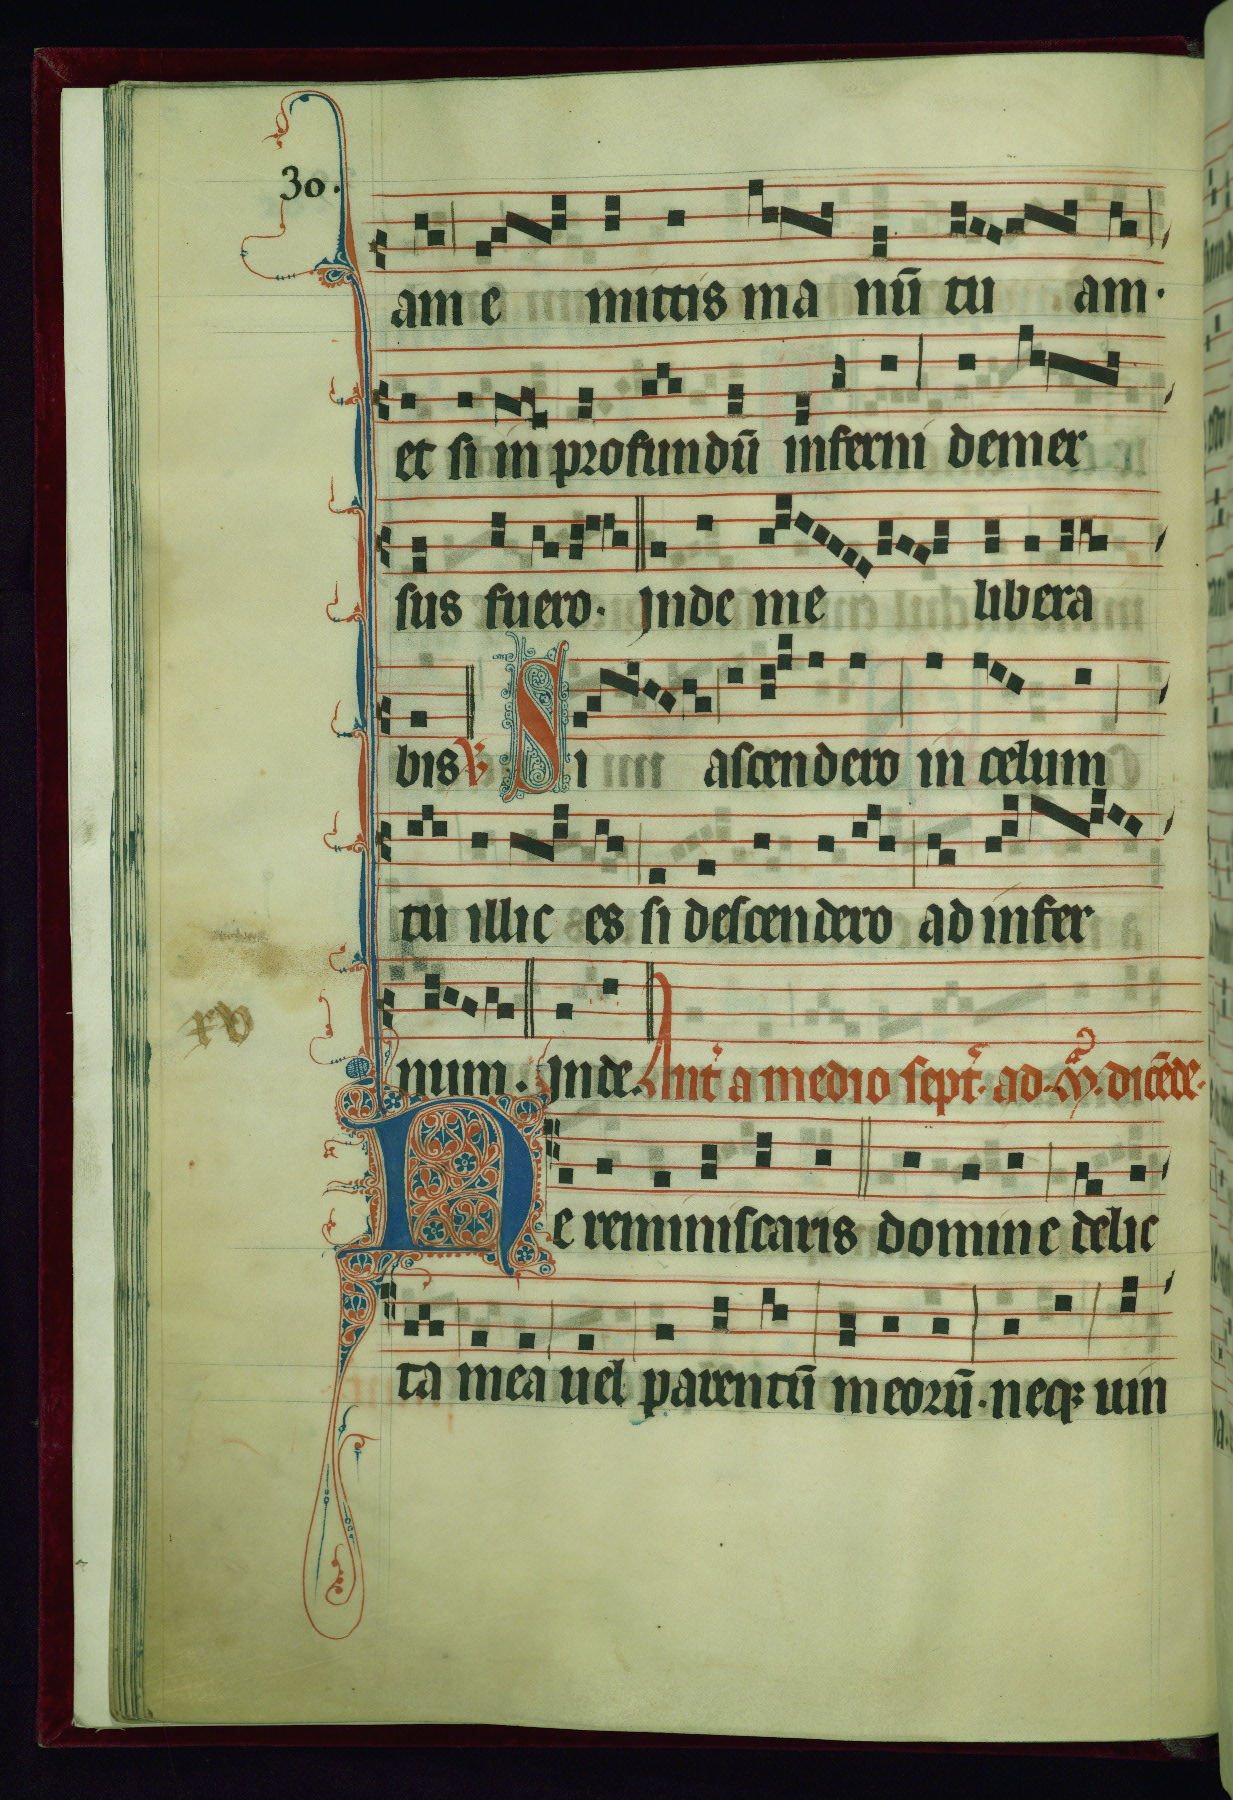 30.
am e mittis ma nū tu am.
et si in profundū inferni demer
sus fuero. Inde me libera
bis ℣ Si ascendero in celum
tu illic es si descendero ad infer
num. Inde. Ant̄ a medio sept̄. ad. M̄. dicēde.
Ne reminiscaris domine delic
ta mea uel parentū meorū. neqꝫ uin